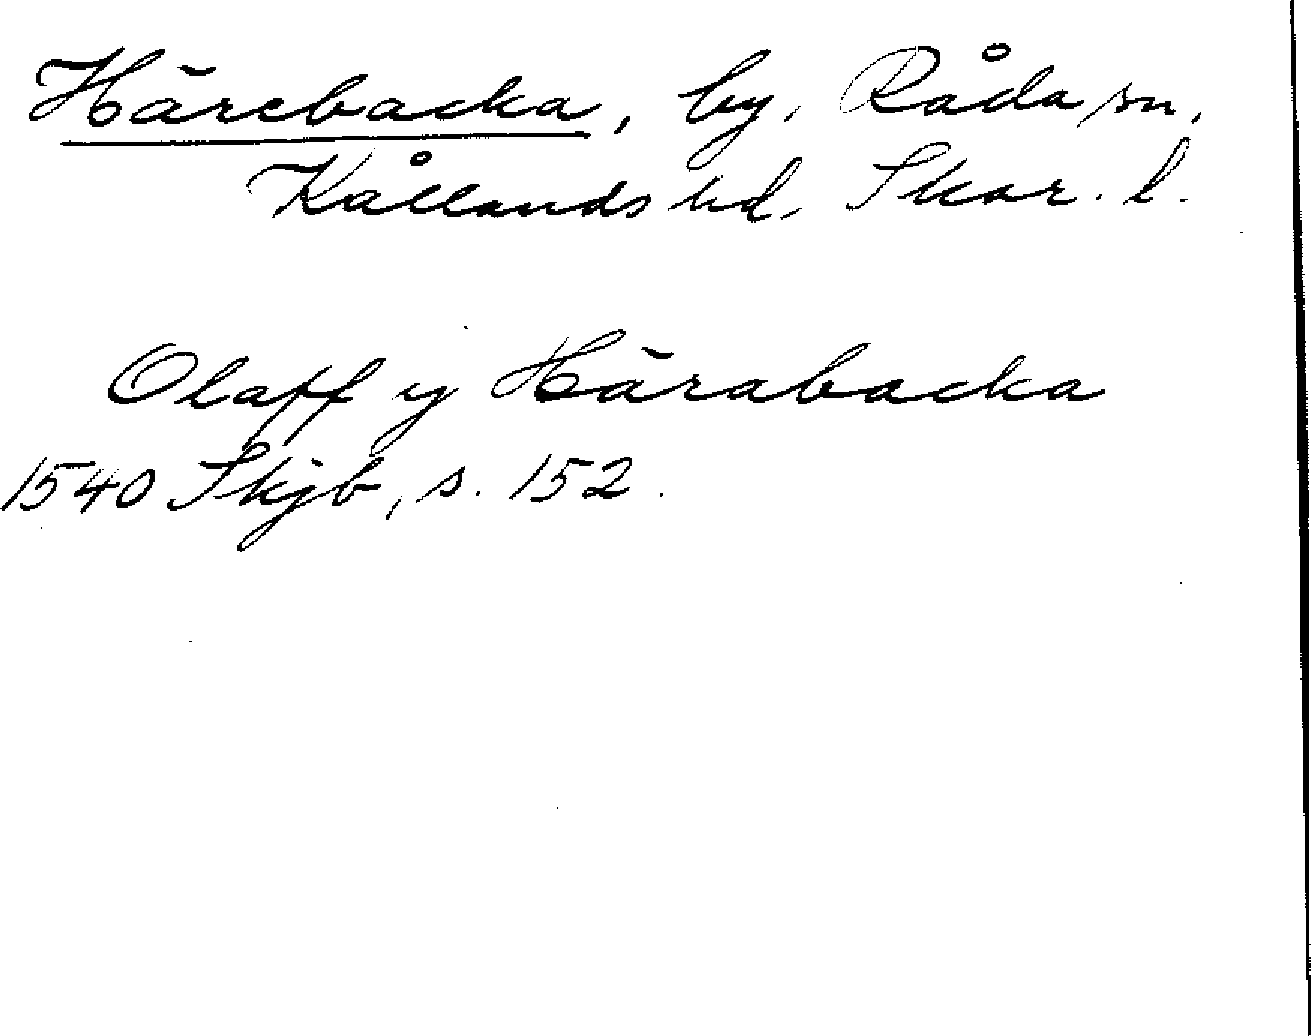 Härebacka, by, Råda sn,
Kållands hd, Skar. l.
Olaff y Härabacka
1540 Skjb, s. 152.